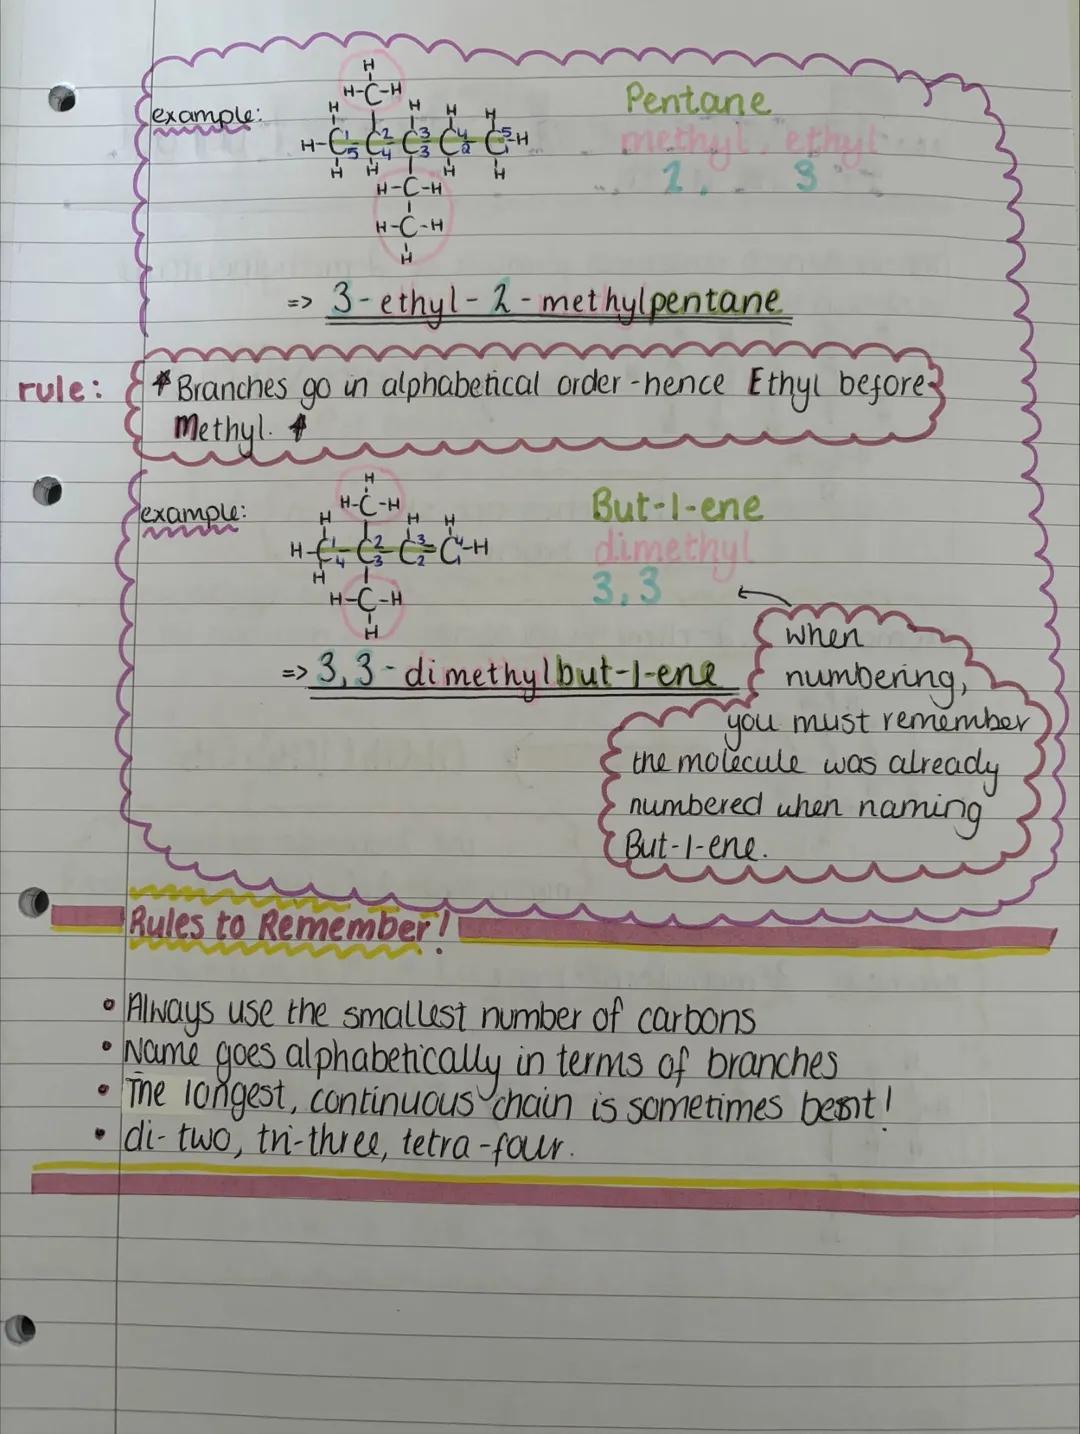 example:
H
H-C-H
H H H H
H-C-C-C-C-C-H
1 2 3 4 5
5 4 3 2 1
H H H H
H-C-H
H-C-H
H
Pentane
methyl, ethyl
2, 3
=> 3-ethyl-2-methylpentane
rule:
*Branches go in alphabetical order-hence Ethyl before
Methyl. *
example:
H
H-C-H
H H H
H-C-C-C=C-H
1 2 3 4
4 3 2 1
H
H-C-H
H
But-1-ene
dimethyl
3,3
=> 3,3-dimethylbut-1-ene
when
numbering,
you must remember
the molecule was already
numbered when naming
But-1-ene.
Rules to Remember!
• Always use the smallest number of carbons
• Name goes alphabetically in terms of branches
• The longest, continuous chain is sometimes bent!
• di-two, tri-three, tetra-four.